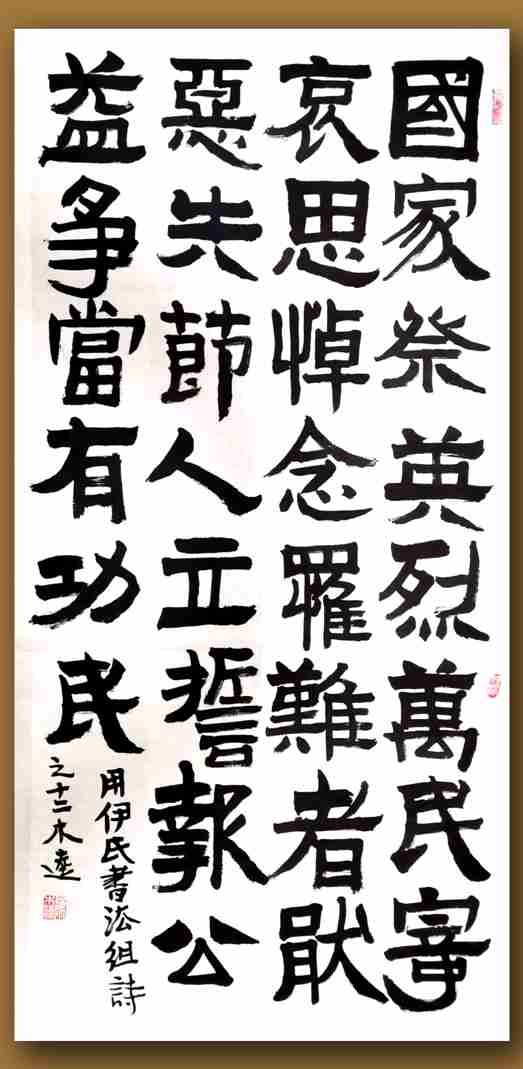 國家祭英烈萬民
哀思悼念罹難者猒
惡失節人立誓報公
益争當有功民
用伊氏書法組詩
之十二木